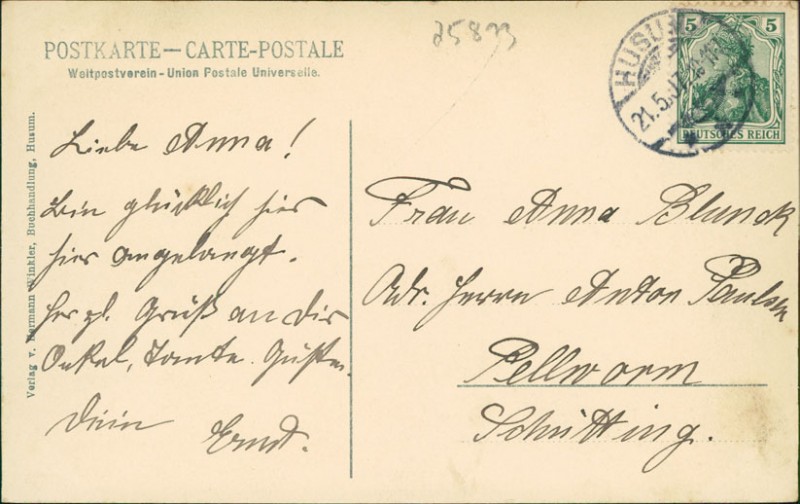 25893
POSTKARTE — CARTE-POSTALE
Weltpostverein - Union Postale Universelle.
Verlag v. Hermann Winkler, Buchhandlung, Husum.
HUSUM
21.5.07
5 5
DEUTSCHES REICH
Liebe Anna!
Bin glücklich hier
hier angelangt.
Herzl. Gruß an Dir
Onkel, Tante
Dein Ernst.
Frau Anna Blunck
Adr. Herrn Anton Paulsen
Pellworm
Schütting.